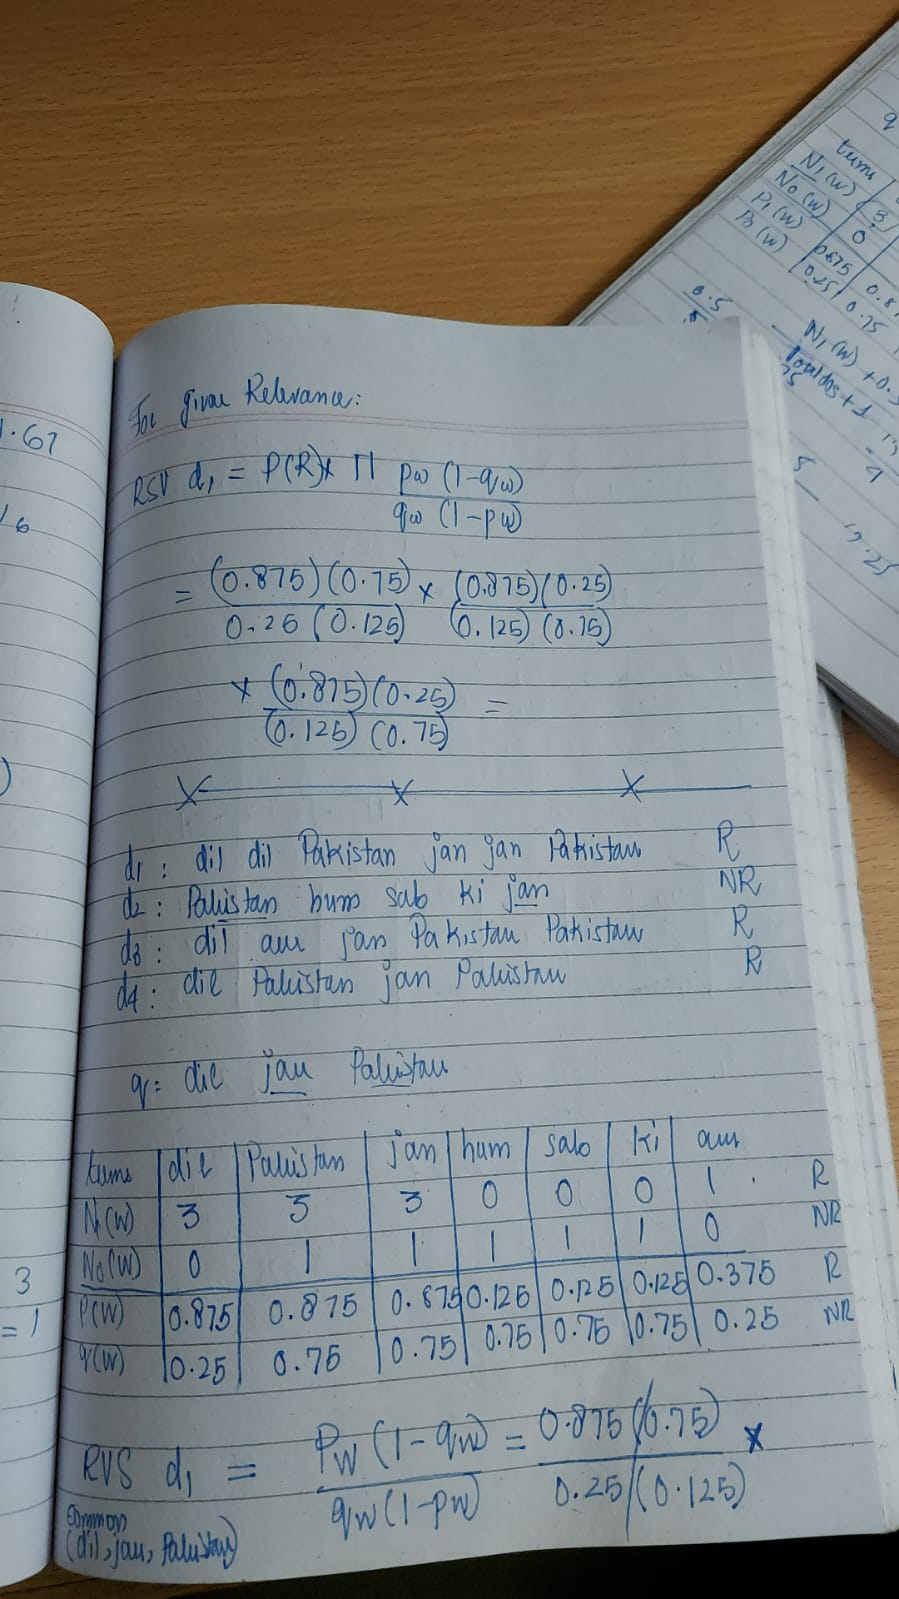 1.67
16
)
3
= 1
For given Relevance:
RSV d₁ = P(R)x Π pw (1-qw) / qw (1-pw)
= (0.875)(0.75) / 0.25 (0.125) x (0.875)(0.25) / (0.125)(0.75)
x (0.875)(0.25) / (0.125)(0.75) =
d₁ : dil dil Pakistan jan jan Pakistan R
d₂ : Pakistan hum sab ki jan NR
d₃ : dil aur jan Pakistan Pakistan R
d₄ : dil Pakistan jan Pakistan R
q= dil jan Pakistan
terms dil Pakistan jan hum sab ki aur
N₁(w) 3 3 3 0 0 0 1 R
N₀(w) 0 1 1 1 1 1 0 NR
P(w) 0.875 0.875 0.875 0.125 0.125 0.125 0.375 R
q(w) 0.25 0.75 0.75 0.75 0.75 0.75 0.25 NR
RVS d₁ = Pw (1-qw) / qw (1-pw) = 0.875 (0.75) / 0.25 (0.125) x
common
(dil, jan, Pakistan)
q
terms
N₁(w) 3
N₀(w) 0
P₁(w) 0.875 0.8
P₀(w) 0.25 0.75
0.5
N₁(w) +0.
Total docs +1
5